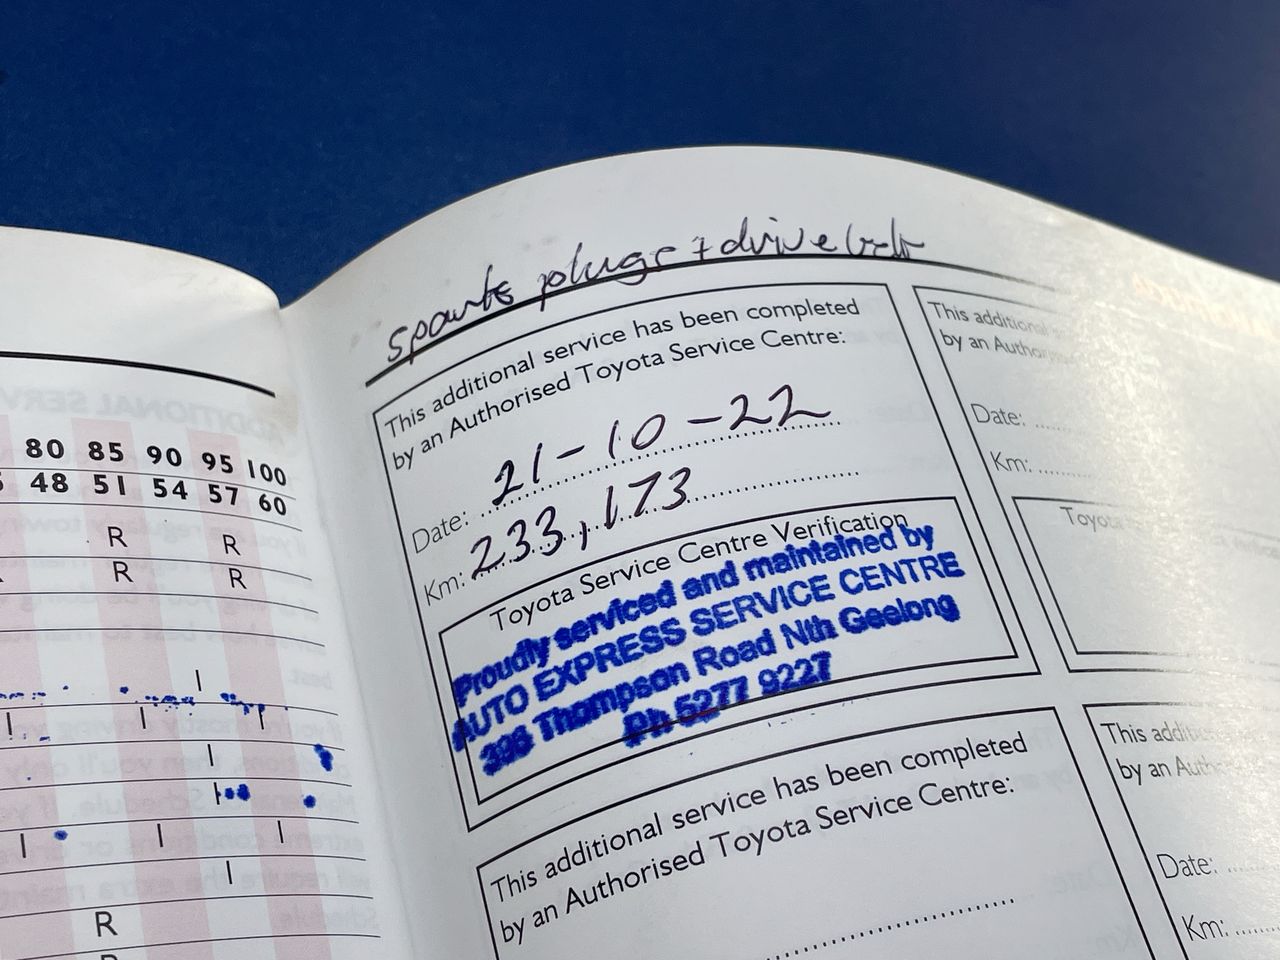 sparks plugs + drive belt
This additional service has been completed
by an Authorised Toyota Service Centre:
Date: 21-10-22
Km: 233,173
Toyota Service Centre Verification
Proudly serviced and maintained by
AUTO EXPRESS SERVICE CENTRE
398 Thompson Road Nth Geelong
Ph 5277 9227
This additional service has been completed
by an Authorised Toyota Service Centre:
This additional
by an
Date:
Km:
Toyota
This
by an
Date:
Km:
80 85 90 95 100
48 51 54 57 60
R R
R R
I
I I I
I
I
I I I
I
R